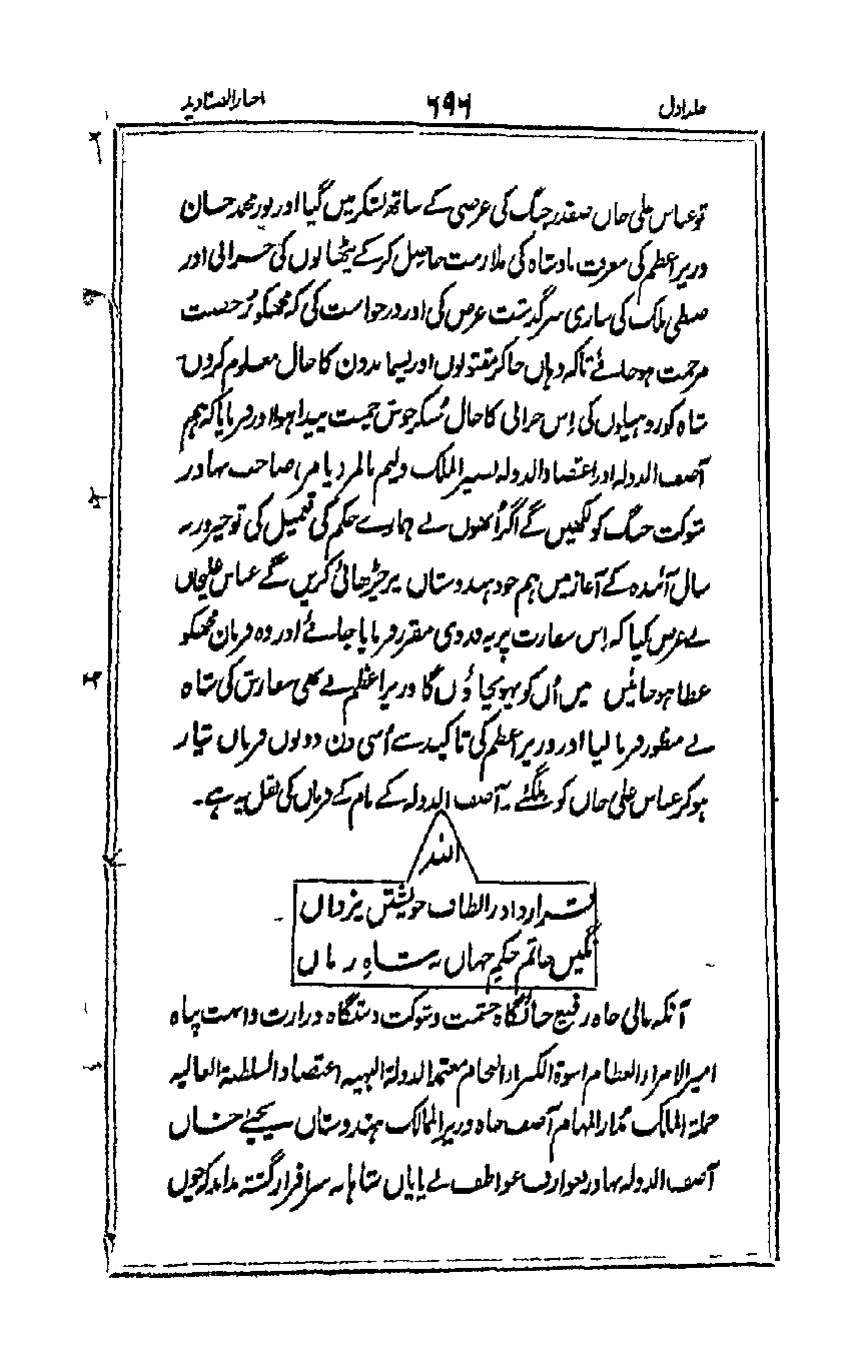 جلد اول ۶۹۶ اخبار الصنادید
تو عباس علی خاں صفدر جنگ کی عرضی کے ساتھ لشکر میں گیا اور نور محمد خسان
وزیر اعظم کی معرفت بادشاہ کی ملازمت حاصل کرکے پٹھانوں کی خرابی اور
ضبطی ملک کی ساری سرگذشت عرض کی اور درخواست کی کہ مجھکو رخصت
مرحمت ہو جائے تاکہ وہاں جاکر مقتولوں اور پسماندوں کا حال معلوم کروں
شاہ کو روہیلوں کی اِس خرابی کا حال سُنکر جوش حمیت پیدا ہوا اور فرمایا کہ ہم
آصف الدولہ اور اعتضاد الدولہ نصیر الملک ولیم پالمر صاحب بہادر
شوکت جنگ کو لکھیں گے اگر اُنھوں نے ہمارے حکم کی تعمیل کی تو خیر ورنہ
سال آئندہ کے آغاز میں ہم خود ہندوستاں پر چڑھائی کریں گے عباس علیخاں
نے عرض کیا کہ اِس سفارت پر یہ فدوی مقرر فرمایا جائے اور وہ فرمان مجھکو
عطا ہو جائیں میں اُن کو پہونچاؤں گا وزیر اعظم نے بھی سفارش کی شاہ
نے منظور فرمالیا اور وزیر اعظم کی تاکید سے اُسی دن دونوں فرماں تیار
ہوکر عباس علی خاں کو ملگئے ۔ آصف الدولہ کے نام کے فرماں کی نقل یہ ہے۔
اللہ
قرار داد ز الطاف خویشتن یزداں
نگین خاتم حکم جہاں بہ شاہِ زماں
آنکہ عالی جاہ رفیع جائگاہ حشمت و شوکت دستگاہ وزارت و است پناہ
امیر الامراء العظام اسوۃ الکبراء الفخام معتمد الدولۃ البہیہ اعتضاد السلطنۃ العالیہ
جملۃ الملک مدار المہام آصف جاہ وزیر الممالک ہندوستاں یحییٰ خاں
آصف الدولہ بہادر بعوارف عواطف بے پایاں شاہانہ سرافراز گشتہ بداند کہ چوں